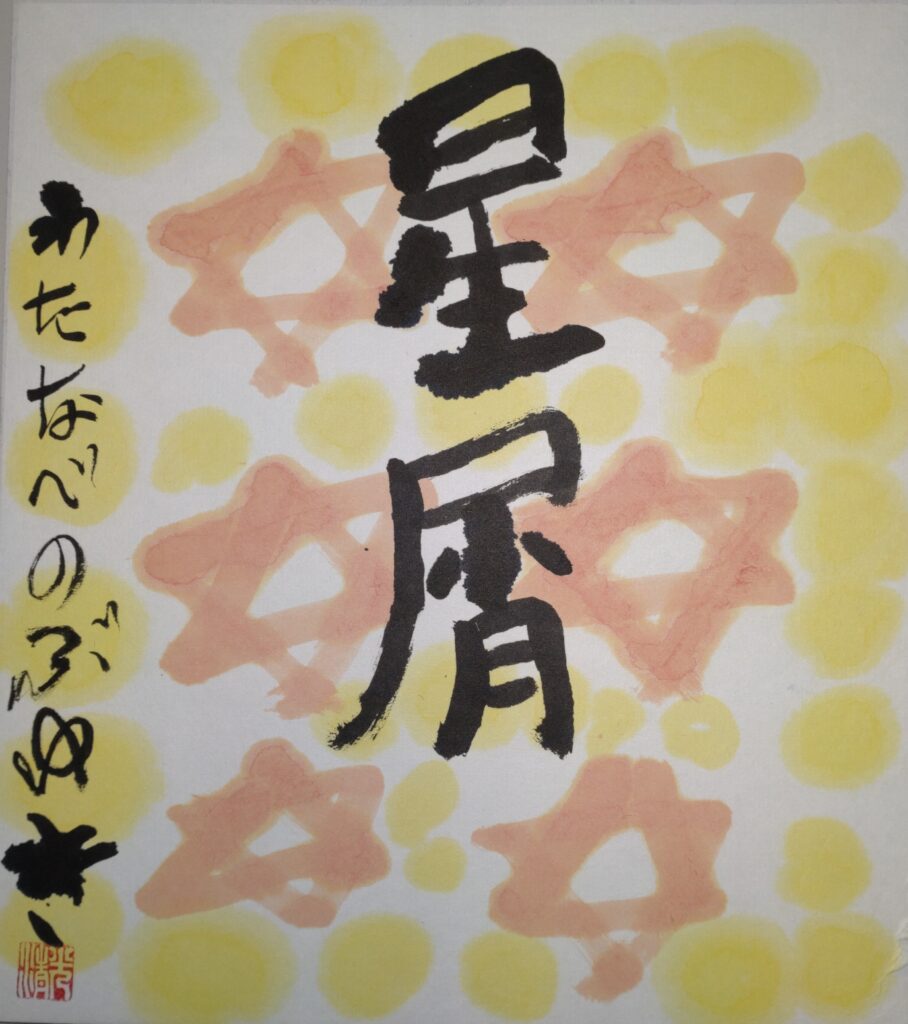 星屑
わたなべのぶゆき